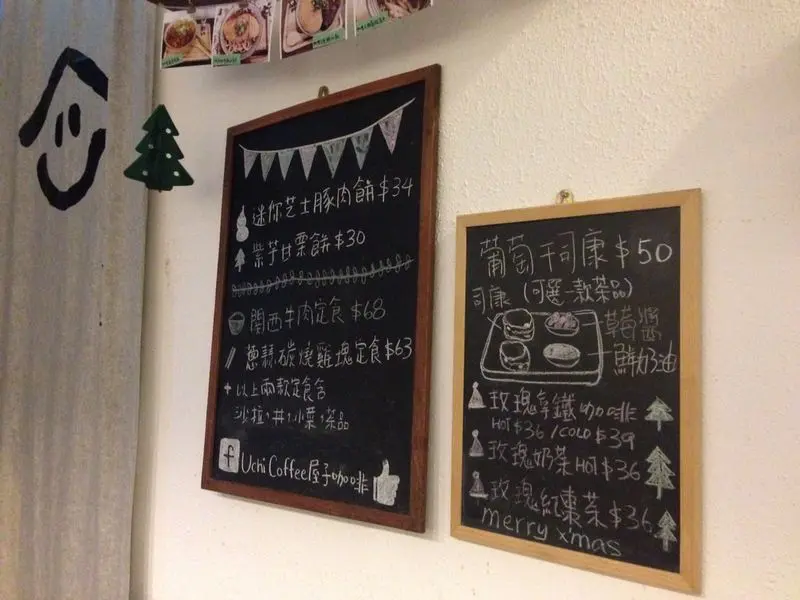 迷你芝士豚肉餅 $34
紫芋甘栗餅 $30
関西牛肉定食 $68
蔥蒜碳燒雞塊定食 $63
+ 以上兩款定食含
沙拉,丼,小菜,茶品
f Uchi Coffee 屋子咖啡
葡萄干司康 $50
(可選一款茶品)
司康
莓醬
鮮奶油
玫瑰拿鐵咖啡
HOT $36 / COLD $39
玫瑰奶茶 HOT $36
玫瑰紅棗茶 $36
merry x'mas